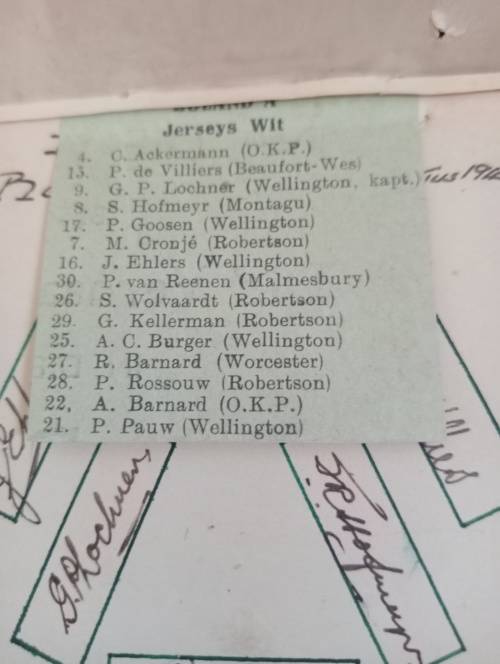 BOLAND A
Jerseys Wit
4. C. Ackermann (O.K.P.)
15. P. de Villiers (Beaufort-Wes)
9. G. P. Lochner (Wellington, kapt.)
8. S. Hofmeyr (Montagu)
17. P. Goosen (Wellington)
7. M. Cronjé (Robertson)
16. J. Ehlers (Wellington)
30. P. van Reenen (Malmesbury)
26. S. Wolvaardt (Robertson)
29. G. Kellerman (Robertson)
25. A. C. Burger (Wellington)
27. R. Barnard (Worcester)
28. P. Rossouw (Robertson)
22, A. Barnard (O.K.P.)
21. P. Pauw (Wellington)
GPLochner
SRHofmeyr